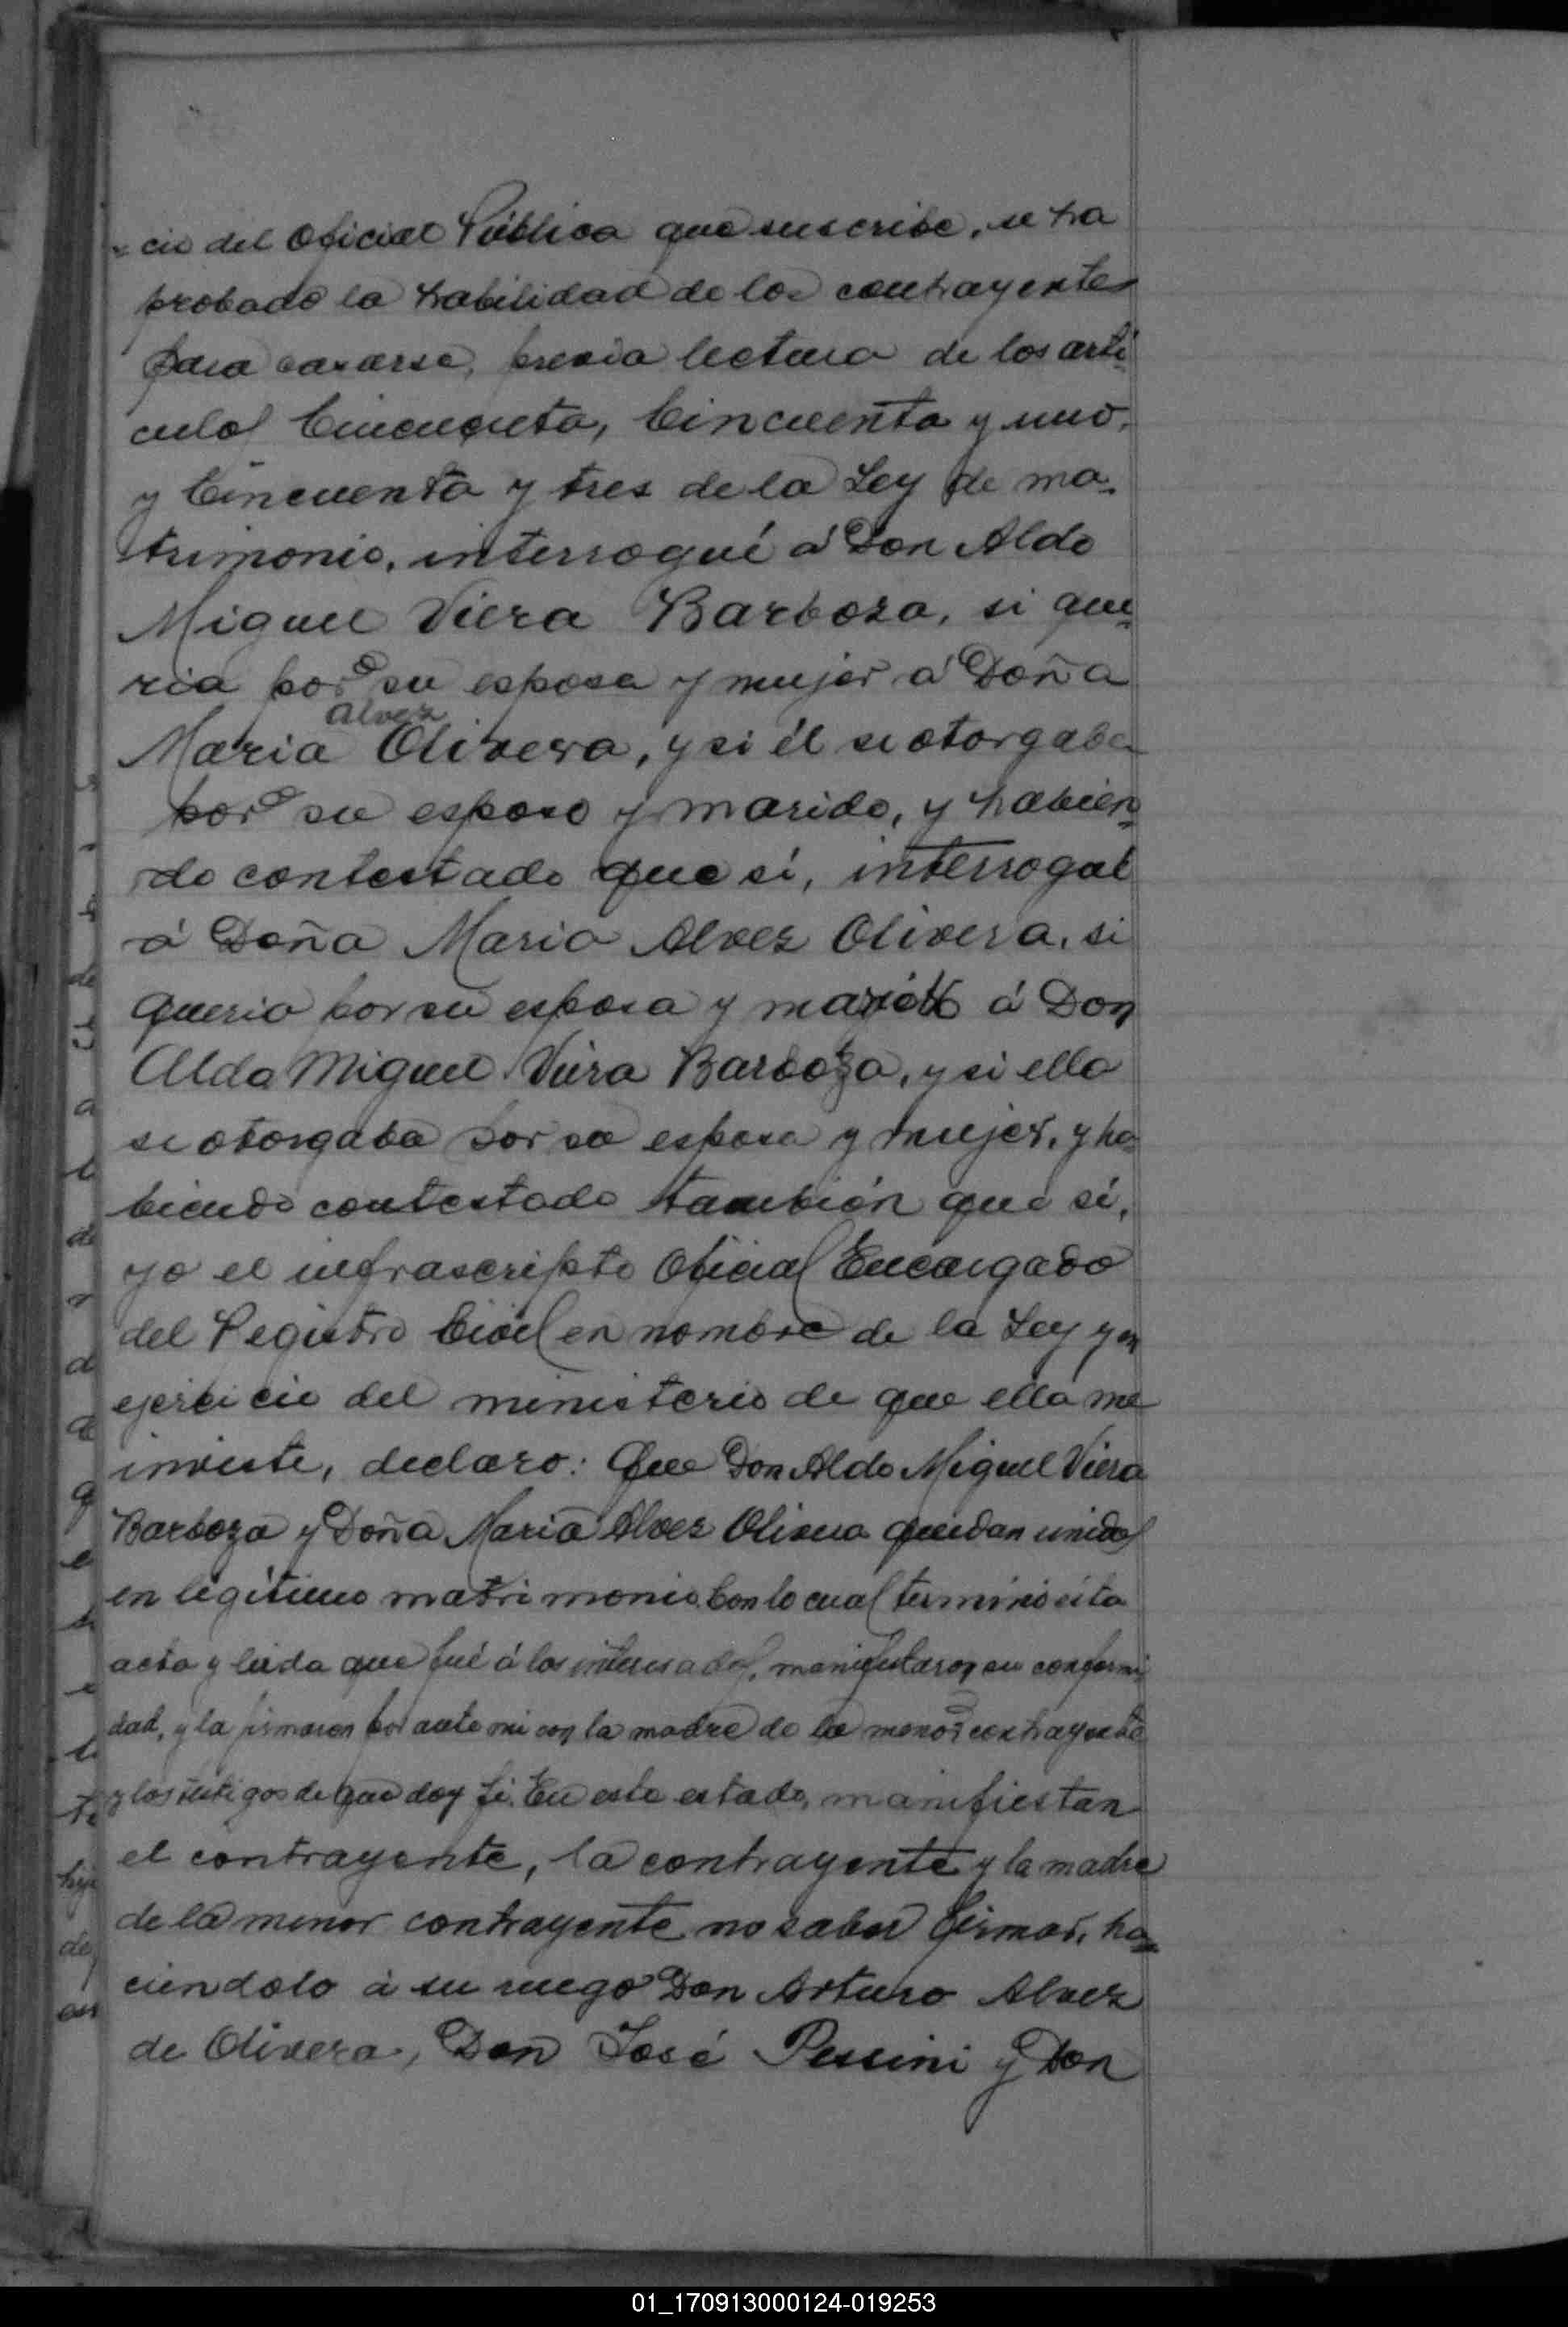 cio del Oficial Público que suscribe, se ha
probado la habilidad de los contrayentes
para casarse, previa lectura de los artí-
culos Cincuenta, Cincuenta y uno,
y Cincuenta y tres de la Ley de ma-
trimonio, interrogué á Don Aldo
Miguel Viera Barboza, si que-
ria por su esposa y mujer á Doña
Alvez
Maria Olivera, y si él se otorgaba
por su esposo y marido, y habien-
do contestado que sí, interrogué
á Doña Maria Alvez Olivera, si
queria por su esposo y marido á Don
Aldo Miguel Viera Barboza, y si ella
se otorgaba por su esposa y mujer, y ha-
biendo contestado también que sí,
yo el infrascripto Oficial Encargado
del Registro Civil en nombre de la Ley y en
ejercicio del ministerio de que ella me
inviste, declaro: Que Don Aldo Miguel Viera
Barboza y Doña Maria Alvez Olivera quedan unidos
en legítimo matrimonio. Con lo cual terminó esta
acta y leída que fué á los interesados, manifestaron su conformi-
dad, y la firmaron por ante mi con la madre de la menor contrayente
y los testigos de que doy fé. En este estado, manifiestan
el contrayente, la contrayente y la madre
de la menor contrayente no saber firmar, ha-
ciendolo á su ruego Don Arturo Alvez
de Olivera, Don José Pessini y Don
01_170913000124-019253